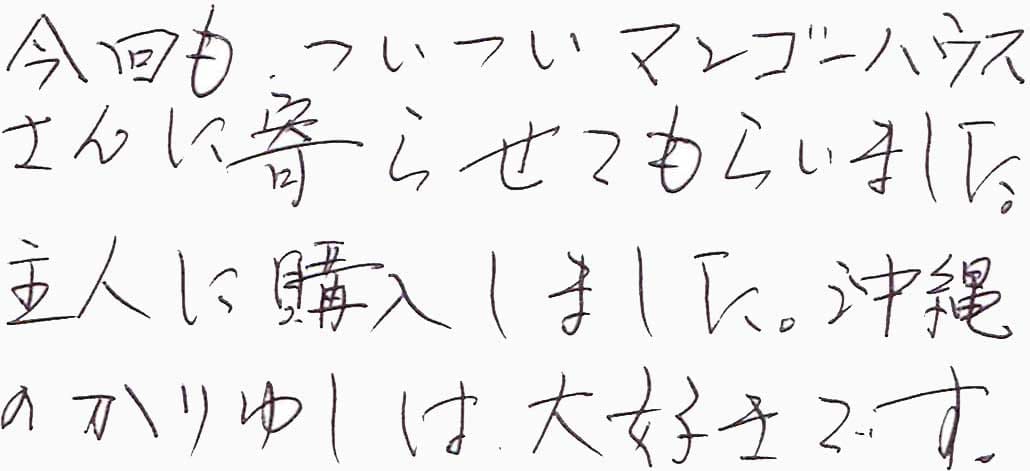 今回も、ついついマンゴーハウス
さんに寄らせてもらいました。
主人に購入しました。沖縄
のかりゆしは、大好きです。